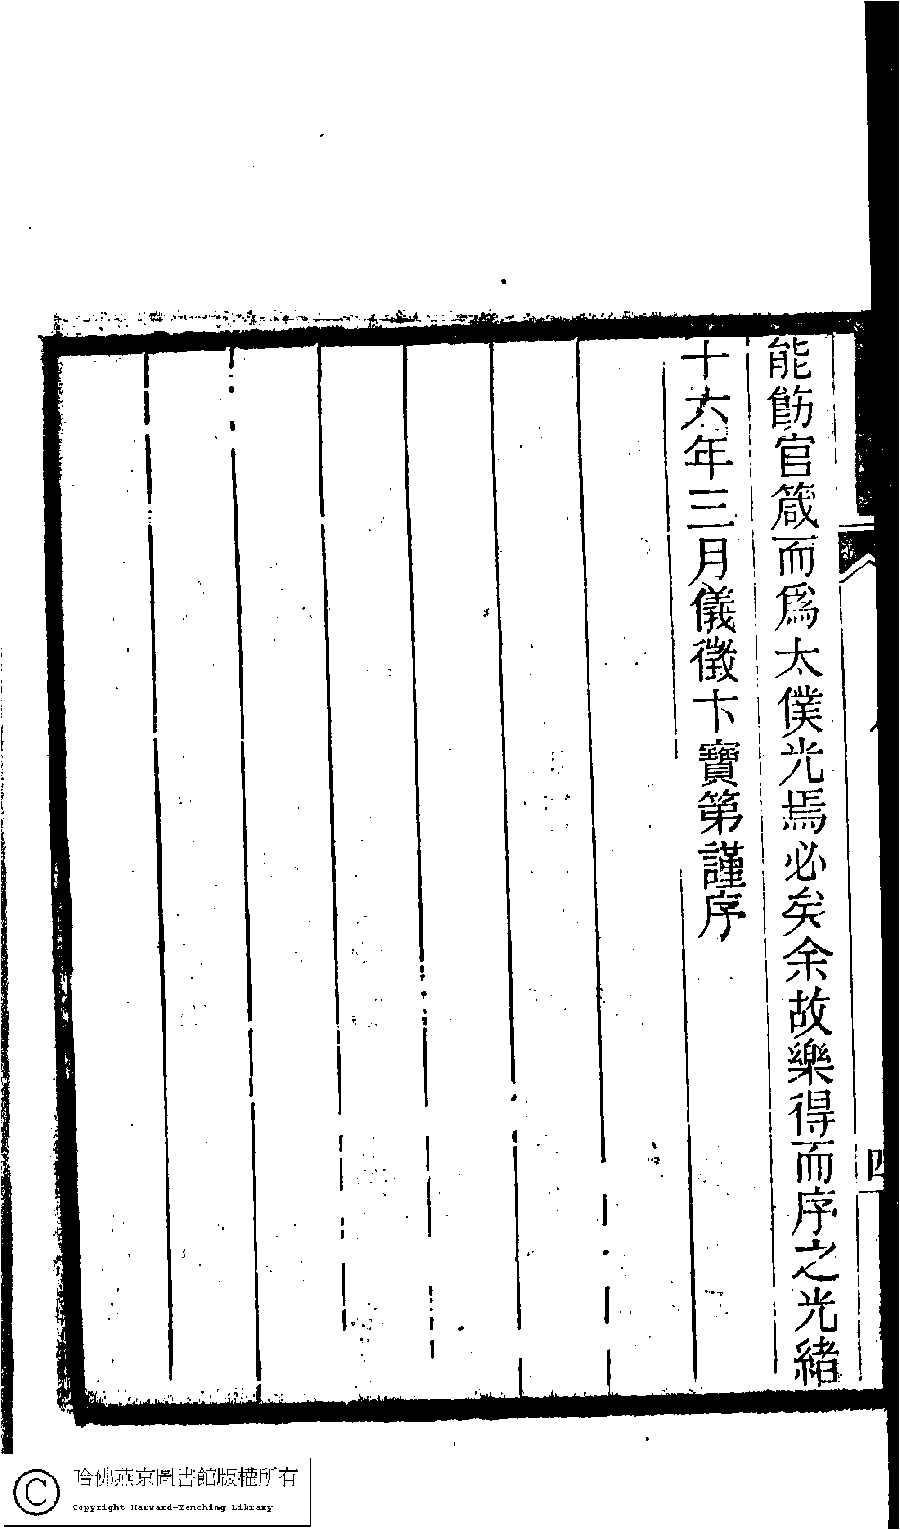 能飭官箴而爲太僕光焉必矣余故樂得而序之光緖
十六年三月儀徵卞寶第謹序
四
哈佛燕京圖書館版權所有
Copyright Harvard-Yenching Library